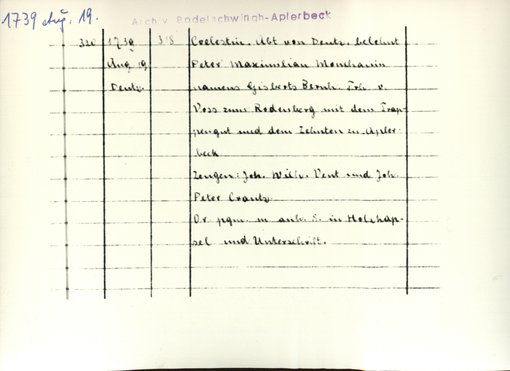 1739 Aug. 19.
Archiv Bodelschwingh-Aplerbeck
320 1739 318 Coelestin, Abt von Deutz, belehnt
Aug 19 Peter Maximilian
Deutz namens Gisberts Bernh. Frh. v.
Voss zum Rodenberg mit dem Trap-
pengut und dem Zehnten zu Apler-
beck
Zeugen: Joh. Wilh. Vent und Joh.
Peter Crantz
Or. pgm. m anh. S. in Holzkap-
sel und Unterschrift.